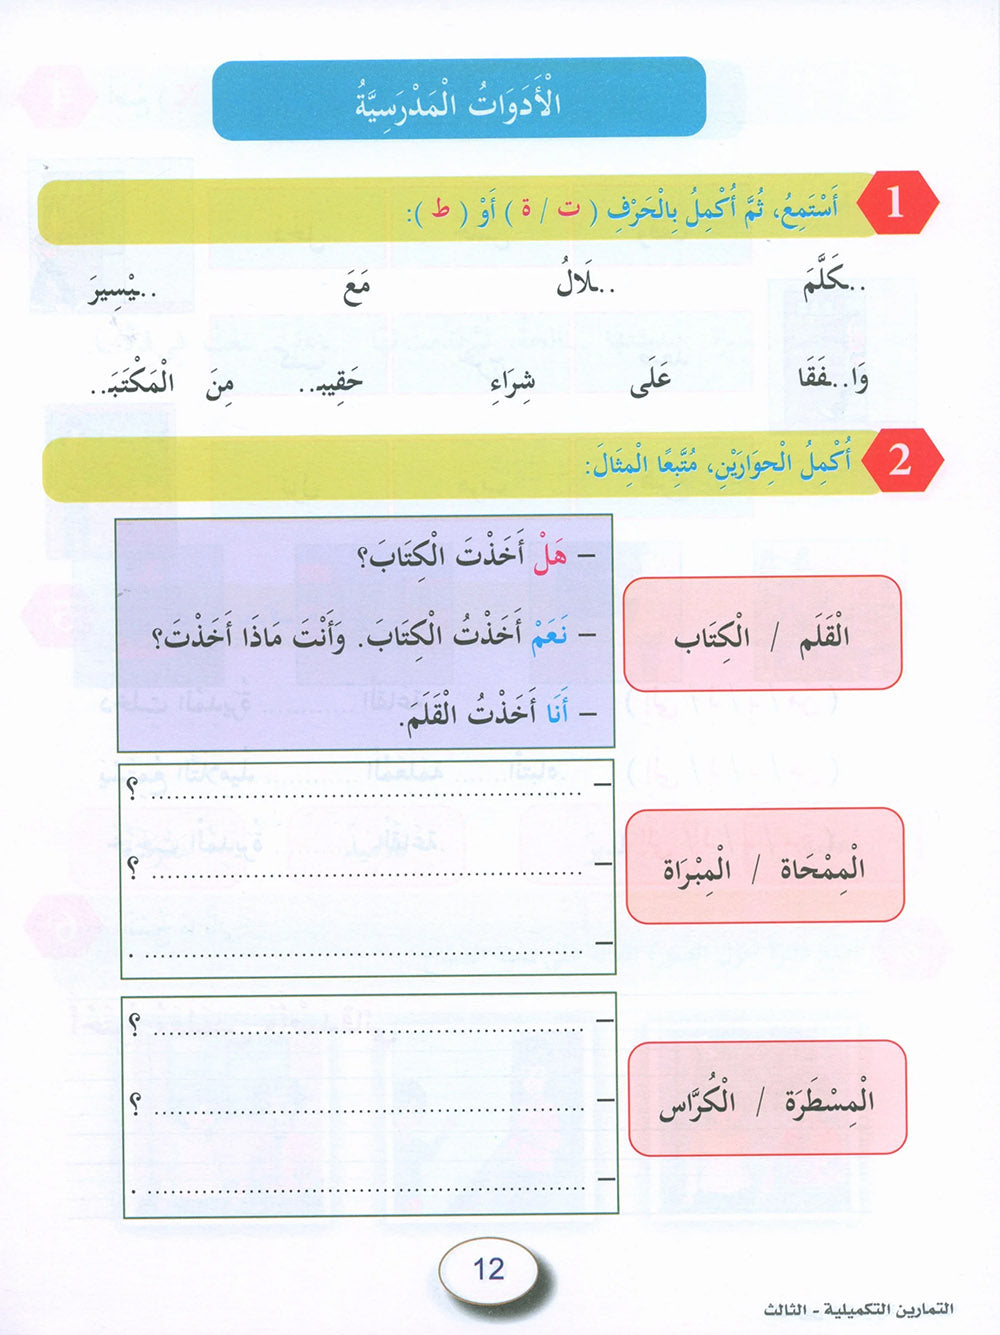 الْأَدَوَاتُ الْمَدْرَسِيَّةُ
1 أَسْتَمِعُ، ثُمَّ أُكْمِلُ بِالْحَرْفِ ( ت / ة ) أَوْ ( ط ):
..ـكَلَّمَ ..ـلَالُ مَعَ ..ـيْسِيرَ
وَا..ـفَقَا عَلَى شِرَاءِ حَقِيبـ.. مِنَ الْمَكْتَبَـ..
2 أُكْمِلُ الْحِوَارَيْنِ، مُتَّبِعًا الْمِثَالَ:
– هَلْ أَخَذْتَ الْكِتَابَ؟
الْقَلَم / الْكِتَاب
– نَعَمْ أَخَذْتُ الْكِتَابَ. وَأَنْتَ مَاذَا أَخَذْتَ؟
– أَنَا أَخَذْتُ الْقَلَمَ.
– .................................................. ؟
الْمِمْحَاة / الْمِبْرَاة
– .................................................. ؟
– .................................................. .
– .................................................. ؟
الْمِسْطَرَة / الْكُرَّاس
– .................................................. ؟
– .................................................. .
12
التمارين التكميلية - الثالث